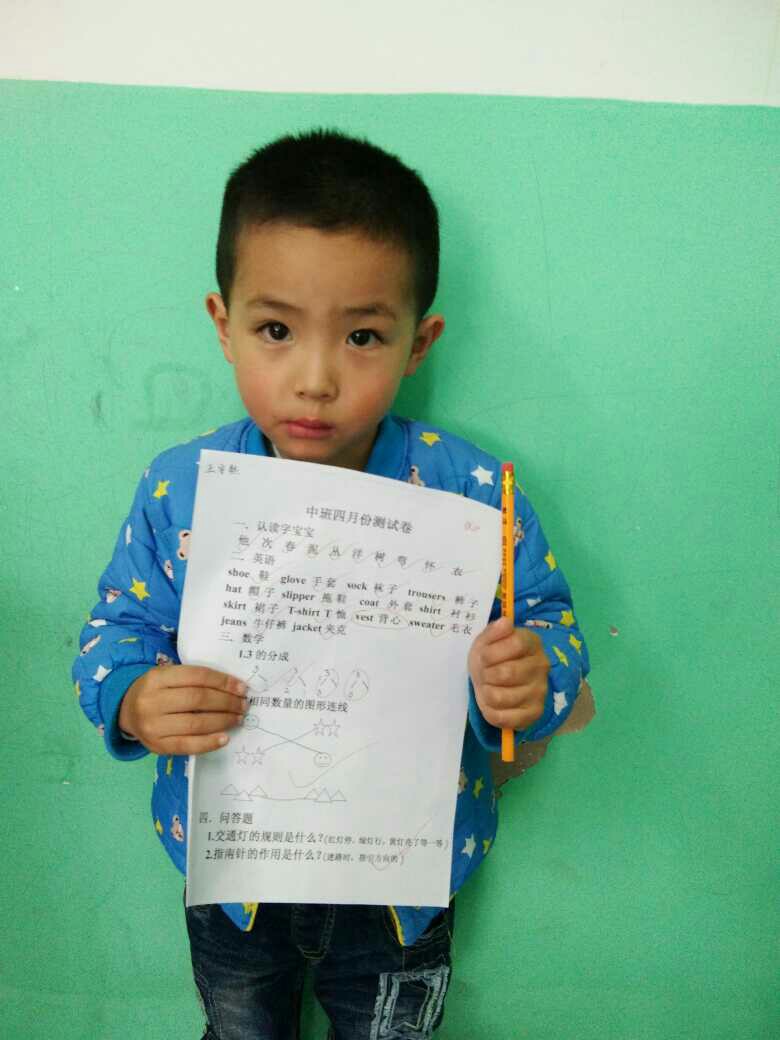 中班四月份测试卷
一、认读字宝宝
他 次 春 泥 丛 洋 树 弯 杯 衣
二 英语
shoe 鞋 glove 手套 sock 袜子 trousers 裤子
hat 帽子 slipper 拖鞋 coat 外套 shirt 衬衫
skirt 裙子 T-shirt T恤 vest 背心 sweater 毛衣
jeans 牛仔裤 jacket 夹克
三、数学
1.3 的分成
3 3 3 3
相同数量的图形连线
四、问答题
1.交通灯的规则是什么?(红灯停，绿灯行，黄灯亮了等一等)
2.指南针的作用是什么?(迷路时，指引方向的)